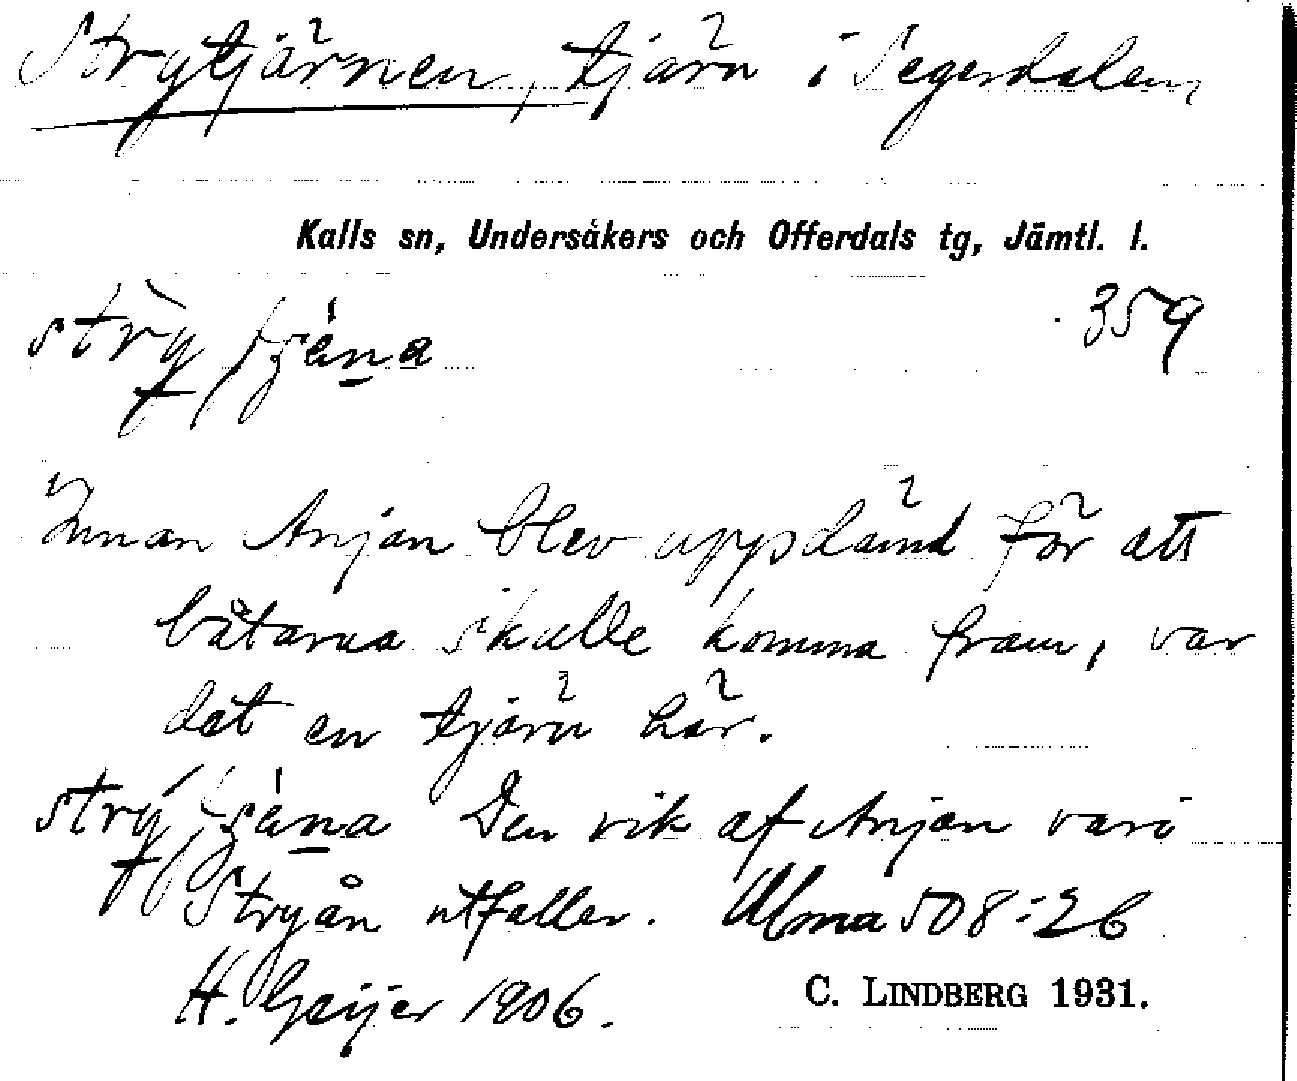 Strytjärnen, tjärn i Segerdalen,
Kalls sn, Undersåkers och Offerdals tg, Jämtl. l.
359
Innan Anjan blev uppdämd för att
båtarna skulle komma fram, var
det en tjärn här.
Den vik af Anjan vari
Stryån utfaller. Ulma 508:26
H. Geijer 1906.
C. LINDBERG 1931.